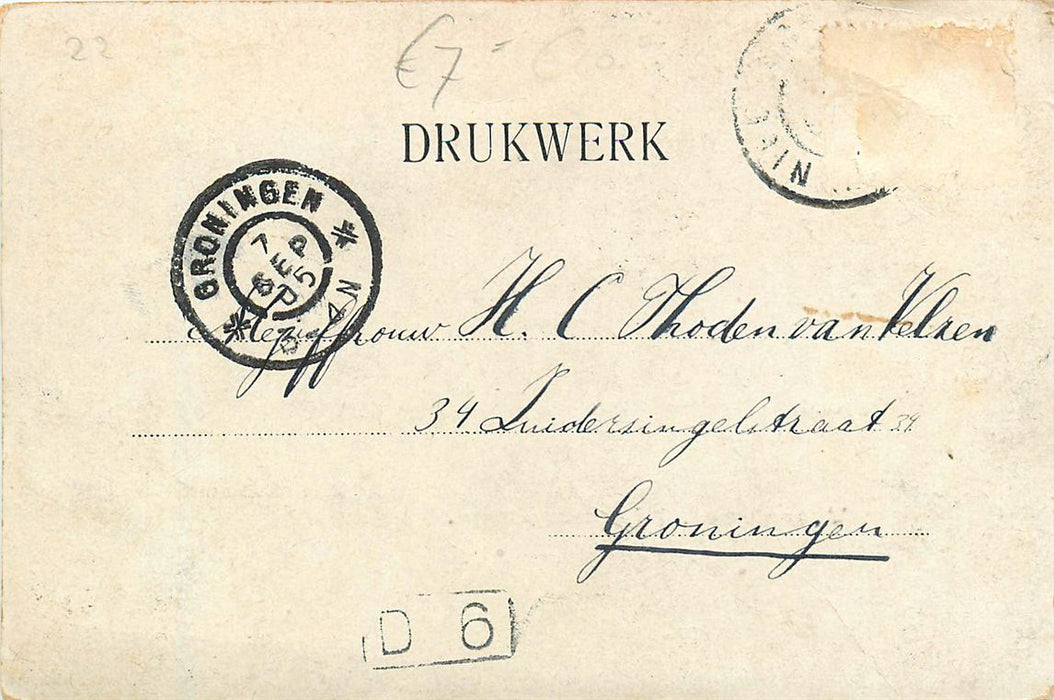 22
€7-
DRUKWERK
GRONINGEN
7
SEP
05
Mejuffrouw H. C Thoden van Velzen
34 Zuidersingelstraat 34
Groningen
D 6